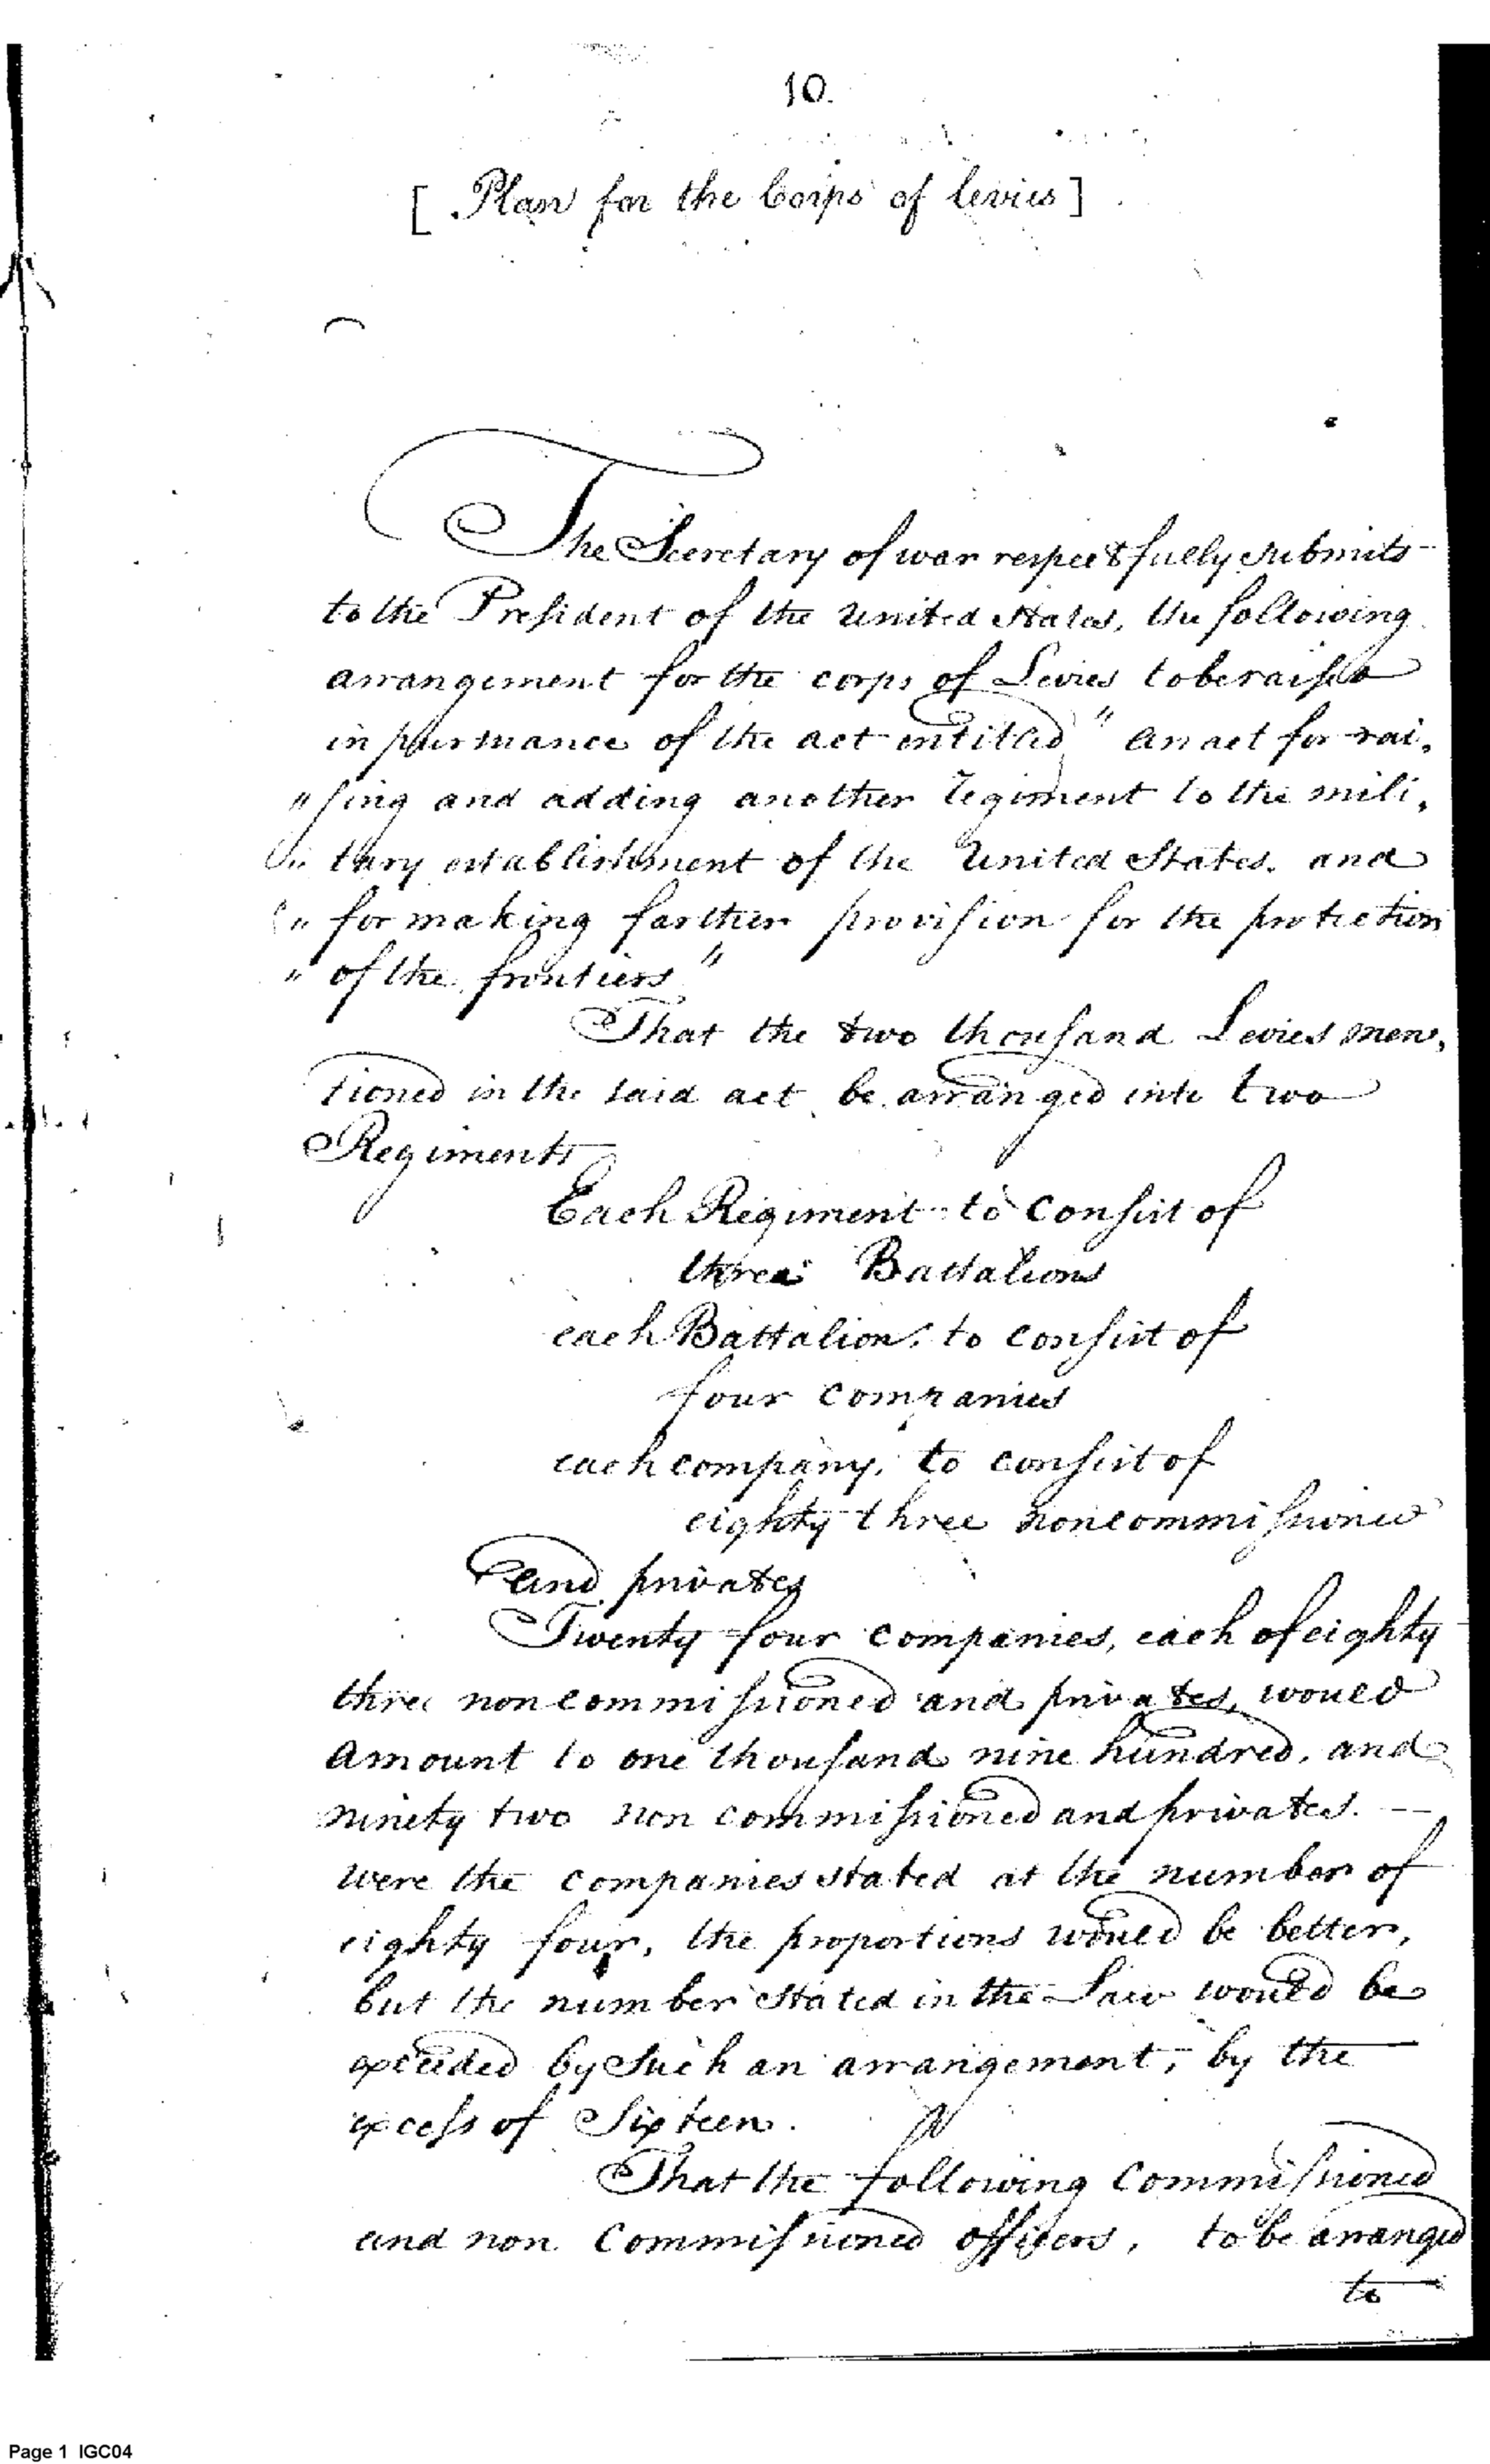 10.
[ Plan for the Corps of levies ]
The Secretary of war respectfully submits
to the President of the United States, the following
arrangement for the corps of Levies to be raised
in pursuance of the act entitled " An act for rai,
" sing and adding another regiment to the mili,
" tary establishment of the United States. and
" for making farther provision for the protection
" of the frontiers "
That the two thousand Levies men,
tioned in the said act be arranged into two
Regiments
Each Regiment to consist of
three Battalions
each Battalion, to consist of
four companies
each company, to consist of
eighty three noncommissioned
and privates
Twenty four companies, each of eighty
three noncommissioned and privates, would
amount to one thousand nine hundred, and
ninety two non commissioned and privates. —
were the companies stated at the number of
eighty four, the proportions would be better,
but the number stated in the Law would be
exceeded by such an arrangement, by the
excess of Sixteen.
That the following Commissioned
and non Commissioned officers, to be arranged
to
Page 1 IGC04